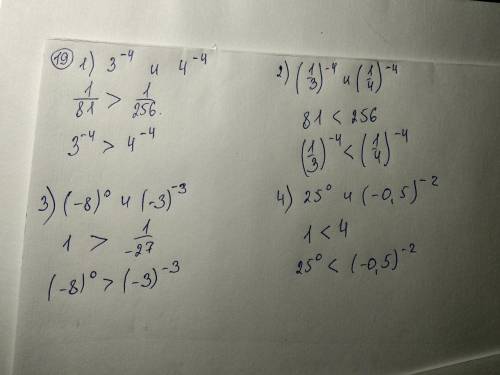 19 1) 3⁻⁴ и 4⁻⁴
1/81 > 1/256.
3⁻⁴ > 4⁻⁴
2) (1/3)⁻⁴ и (1/4)⁻⁴
81 < 256
(1/3)⁻⁴ < (1/4)⁻⁴
3) (-8)⁰ и (-3)⁻³
1 > 1/-27
(-8)⁰ > (-3)⁻³
4) 25⁰ и (-0,5)⁻²
1 < 4
25⁰ < (-0,5)⁻²